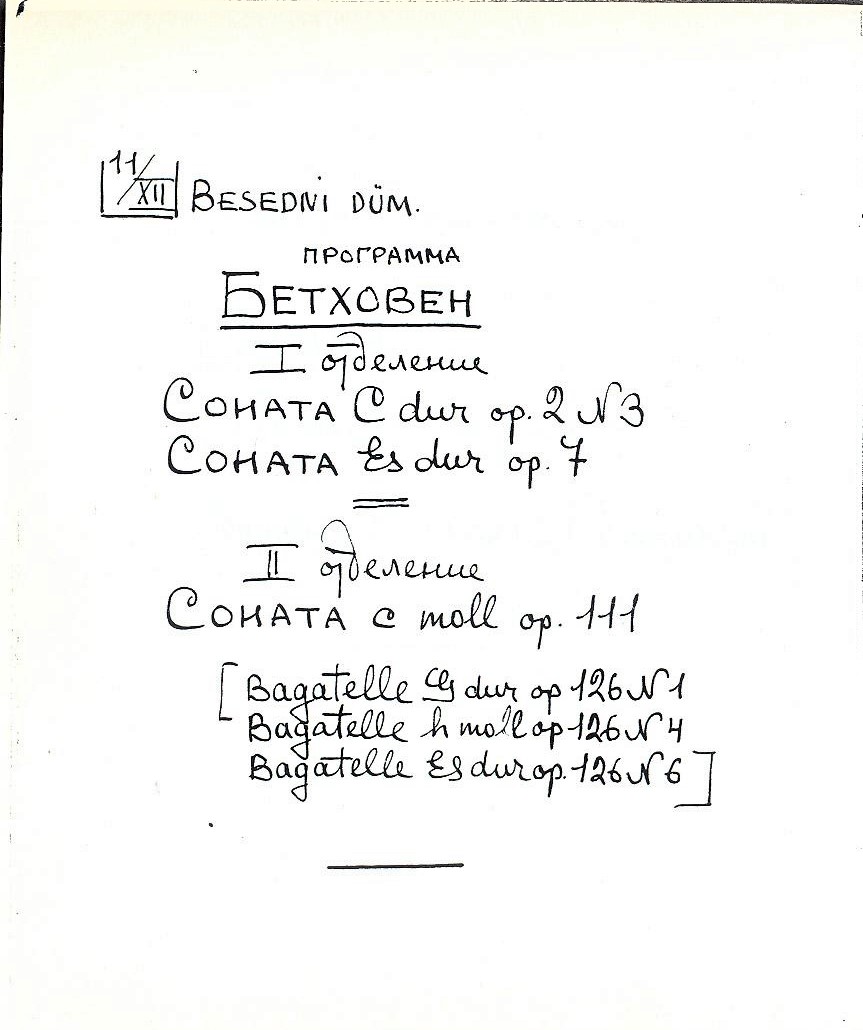 11/XII BESEDNÍ DŮM.
ПРОГРАММА
БЕТХОВЕН
I отделение
СОНАТА C dur op. 2 N 3
СОНАТА Es dur op. 7
II отделение
СОНАТА c moll op. 111
[Bagatelle G dur op 126 N 1
Bagatelle h moll op 126 N 4
Bagatelle Es dur op. 126 N 6]